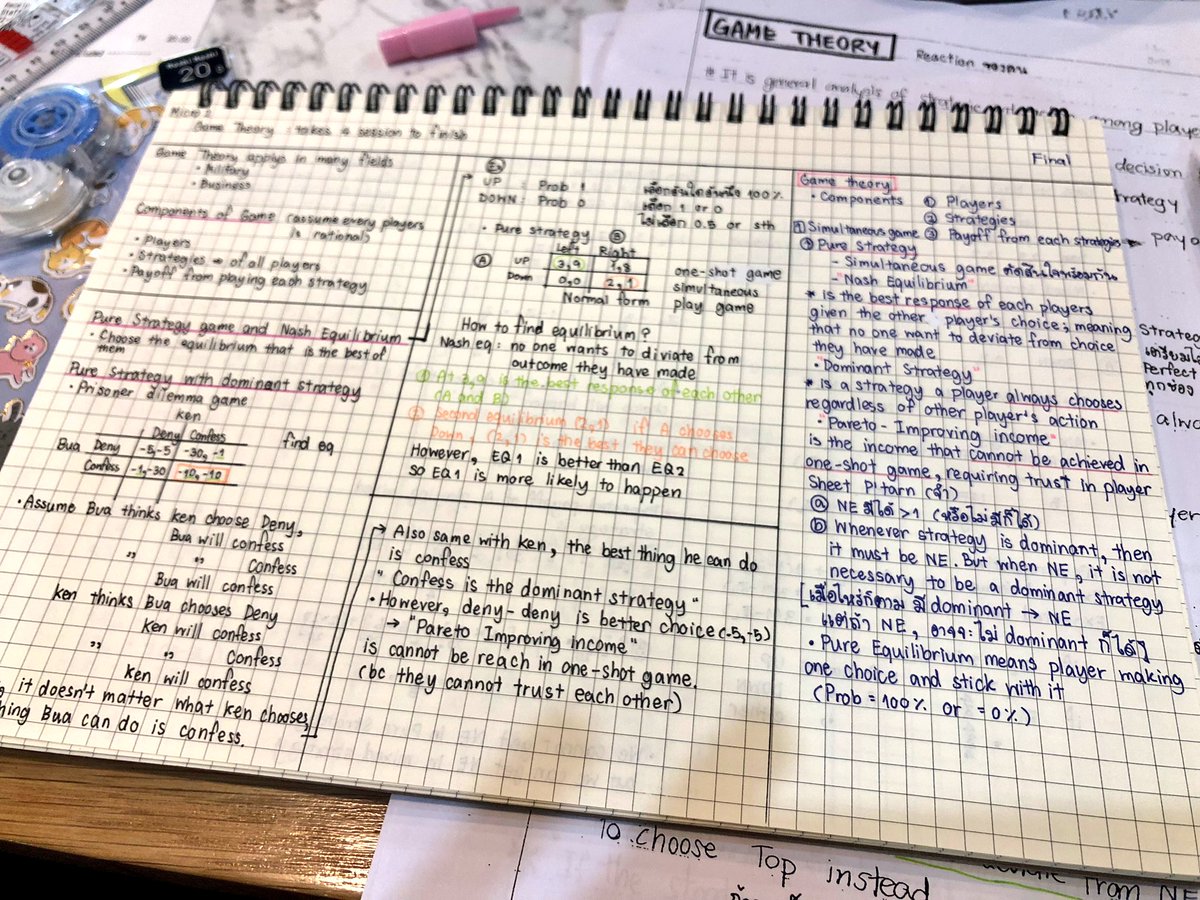 20
GAME THEORY
Reaction ของตน
* It is general analysis of
among player
decision
Micro 2
Game Theory : takes 4 session to finish
Game Theory applys in many fields
• Military
• Business
Components of Game (assume every players
is rational)
• Players
• Strategies of all players
• Payoff from playing each strategy
Pure Strategy game and Nash Equilibrium
• Choose the equilibrium that is the best of
them
Pure Strategy with dominant strategy
• Prisoner dilemma game
ken
Deny Confess
Bua Deny -5,-5 -30,-1
Confess -1,-30 -10,-10
find eq
• Assume Bua thinks ken choose Deny,
Bua will confess
" " Confess
Bua will confess
ken thinks Bua chooses Deny
Ken will confess
" " Confess
Ken will confess
it doesn't matter what ken chooses,
thing Bua can do is confess.
Ex
UP : Prob 1
DOWN : Prob 0
100%
เลือก 1 or 0
ไม่เลือก 0.5 or sth
• Pure strategy
B
Left Right
A UP 3,9 1,8
Down 0,0 2,1
Normal form
one-shot game
simultaneous
play game
How to find equilibrium?
Nash eq : no one wants to diviate from
outcome they have made
① At 3,9 is the best response of each other
(A and B)
② Second equilibrium (2,1) if A chooses
Down, (2,1) is the best they can choose
However, EQ1 is better than EQ2
so EQ1 is more likely to happen
→ Also same with ken, the best thing he can do
is confess
"Confess is the dominant strategy"
• However, deny-deny is better choice (-5,-5)
→ "Pareto Improving income"
is cannot be reach in one-shot game.
(bc they cannot trust each other)
Final
Game theory
• Components ① Players
② Strategies
③ Payoff from each strategies
1 Simultaneous game
① Pure Strategy
- Simultaneous game ตัดสินใจพร้อมกัน
- "Nash Equilibrium"
* is the best response of each players
given the other player's choice; meaning
that no one want to deviate from choice
they have made
"Dominant Strategy"
* is a strategy a player always chooses
regardless of other player's action
"Pareto-Improving income"
is the income that cannot be achieved in
one-shot game, requiring trust in player
Sheet P'tarn (จ้า)
ⓐ NE มีได้ >1 (หรือไม่มีก็ได้)
ⓑ Whenever strategy is dominant, then
it must be NE. But when NE, it is not
necessary to be a dominant strategy
[เมื่อไหร่ก็ตาม มี dominant → NE
แต่ถ้า NE, อาจจะไม่ dominant ก็ได้]
• Pure Equilibrium means player making
one choice and stick with it
(Prob = 100% or = 0%)
Perfect
To choose Top instead
from NE